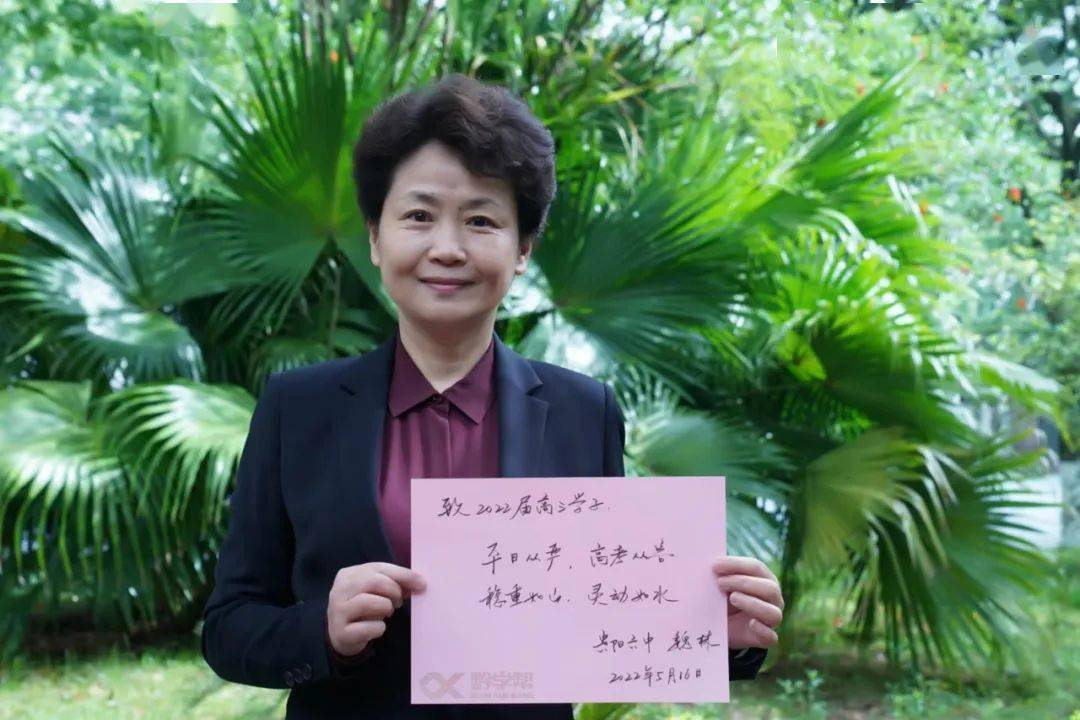 致2022届高三学子:
平日从严，高考从容
稳重如山，灵动如水
贵阳六中 魏林
2022年5月16日
黔学帮
QIAN XUE BANG